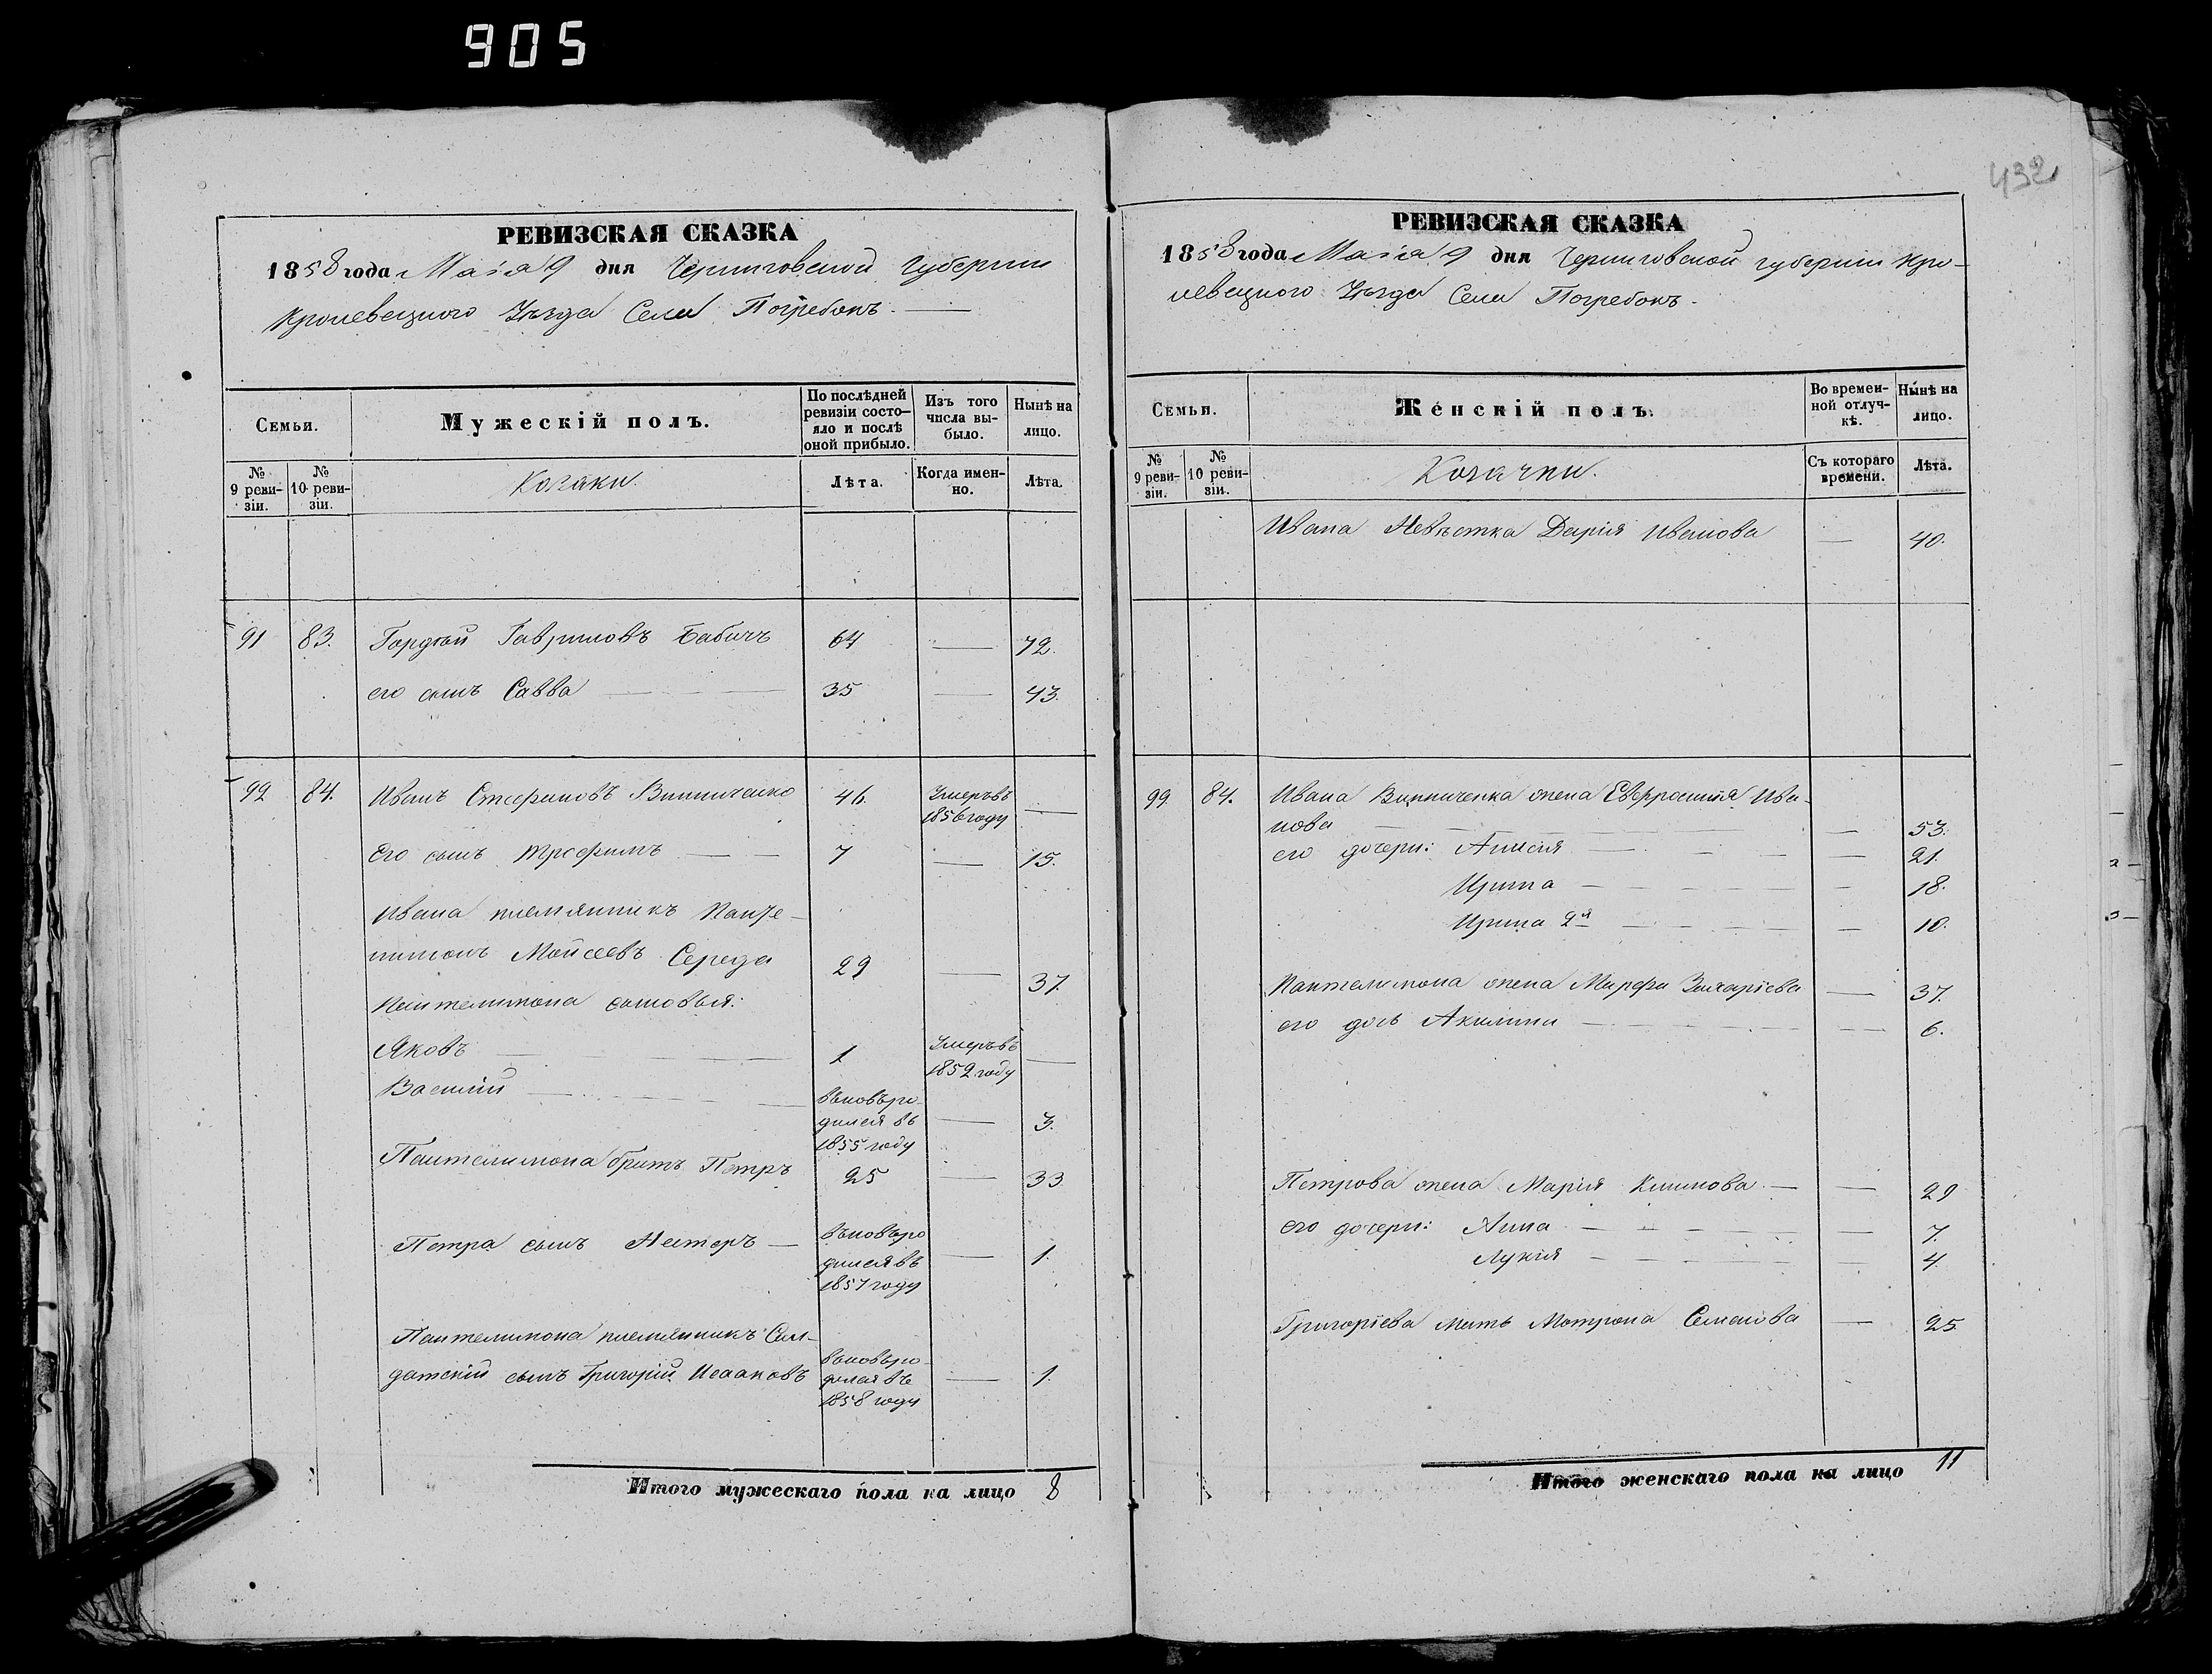 905
432
РЕВИЗСКАЯ СКАЗКА
1858 года Маія 9 дня Черниговской Губерніи
Кролевецкого Уѣзда Села Погребокъ.
Семьи.
Мужескій полъ.
По послѣдней ревизіи состо-
яло и послѣ оной прибыло.
Изъ того числа вы-
было.
Нынѣ на лицо.
№ 9 реви-
зіи.
№ 10 реви-
зіи.
Козаки.
Лѣта.
Когда имен-
но.
Лѣта.
91 83. Гордѣй Гавриловъ Бабичъ 64 — 72.
его сынъ Савва — 35 — 43.
92 84. Иванъ Стефановъ Винниченко 46. Умеръ въ 1856 году —
Его сынъ Трофимъ — 7 — 15.
Ивана племянникъ Панте-
лимонъ Мойсеевъ Середа 29 — 37.
Пантелимона сыновья:
Яковъ — 1 Умеръ въ 1852 году —
Василій — вновь ро-
дился въ 1855 году — 3.
Пантелимона братъ Петръ 25 — 33.
Петра сынъ Нестеръ — вновь ро
дился въ 1857 году — 1.
Пантелимона племянникъ Сол-
датскій сынъ Григорій Исааковъ вновь ро-
дился въ 1858 году — 1.
Итого мужескаго пола на лицо 8
РЕВИЗСКАЯ СКАЗКА
1858 года Маія 9 дня Черниговской губерніи Кро-
левецкого Уѣзда Села Погребокъ.
Семьи.
Женскій полъ.
Во времен-
ной отлуч-
кѣ.
Нынѣ на лицо.
№ 9 реви-
зіи.
№ 10 реви-
зіи.
Козачки.
Съ котораго времени.
Лѣта.
Ивана Невѣстка Дарія Иванова — 40.
99 84. Ивана Винниченка жена Евфросинія Ива-
нова — 53.
его дочери: Анисія — 21.
Ирина — 18.
Ирина 2я — 10.
Пантелимона жена Марфа Захаріева — 37.
его дочь Акилина — 6.
Петрова жена Марія Климова — 29
его дочери: Анна — 7.
Лукія — 4
Григоріева мать Мотрона Семенова — 25.
Итого женскаго пола на лицо 11